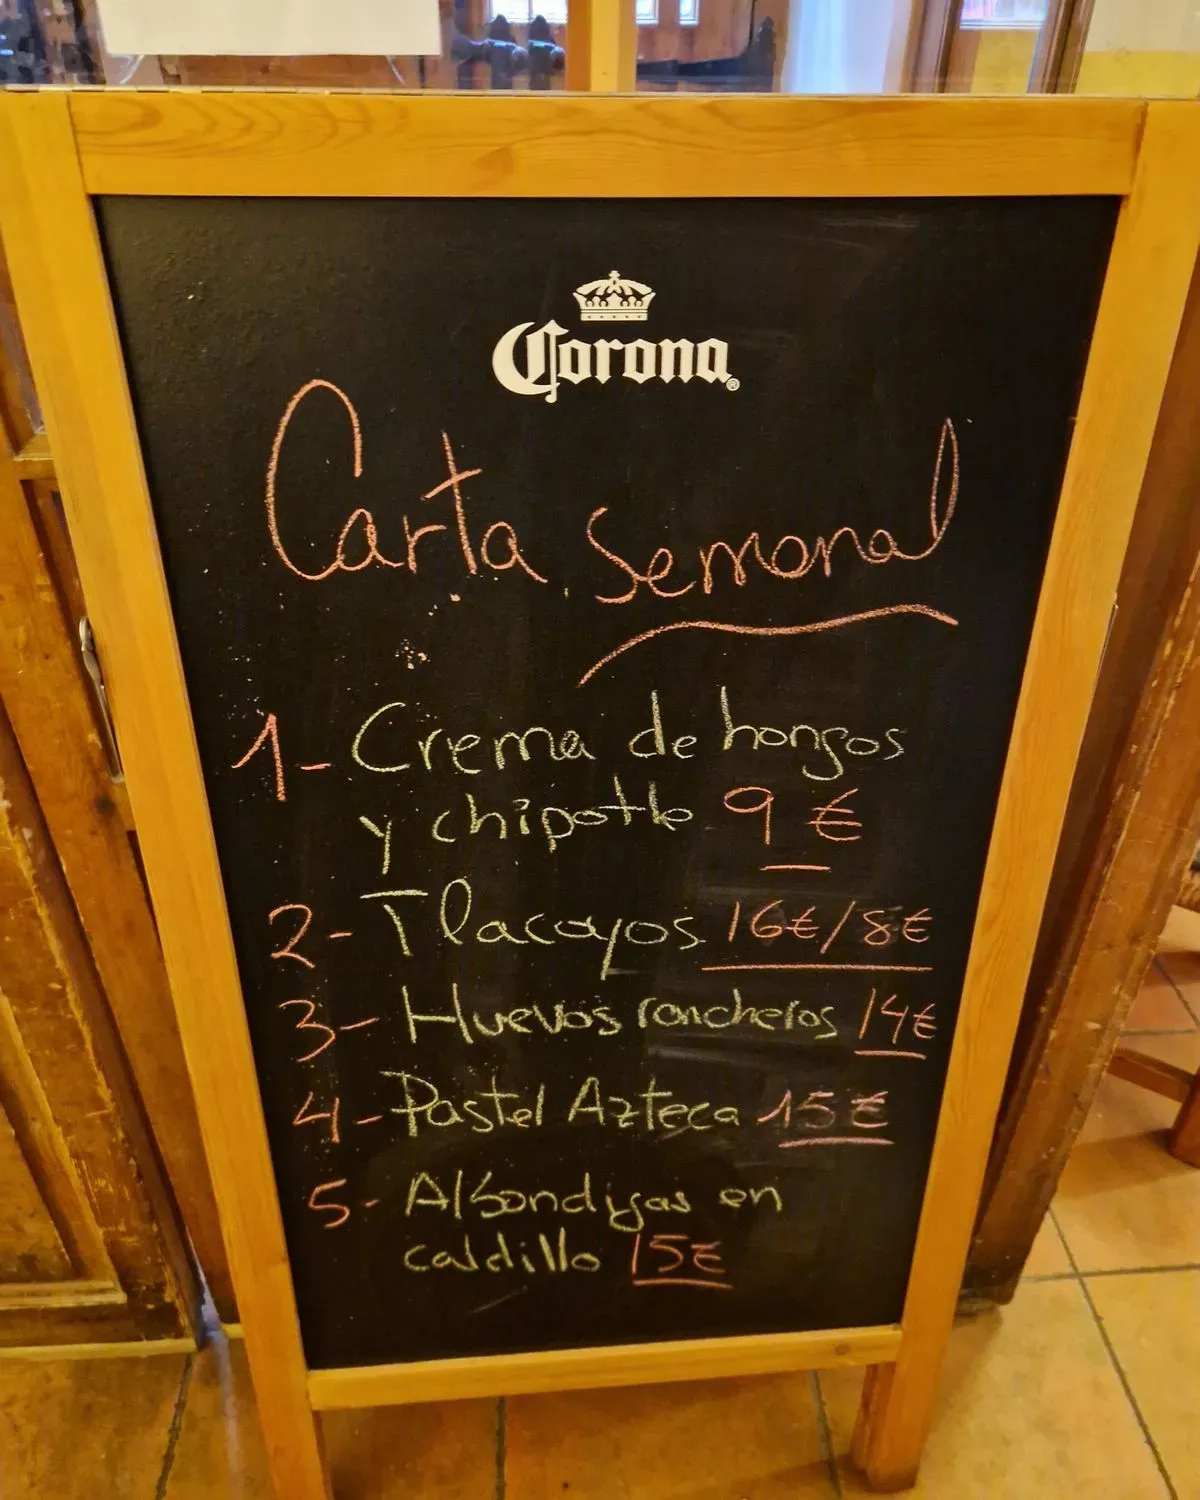 Corona®
Carta Semanal
1- Crema de hongos
y chipotle 9 €
2- Tlacoyos 16€/8€
3- Huevos rancheros 14€
4- Pastel Azteca 15€
5- Albondigas en
caldillo 15€